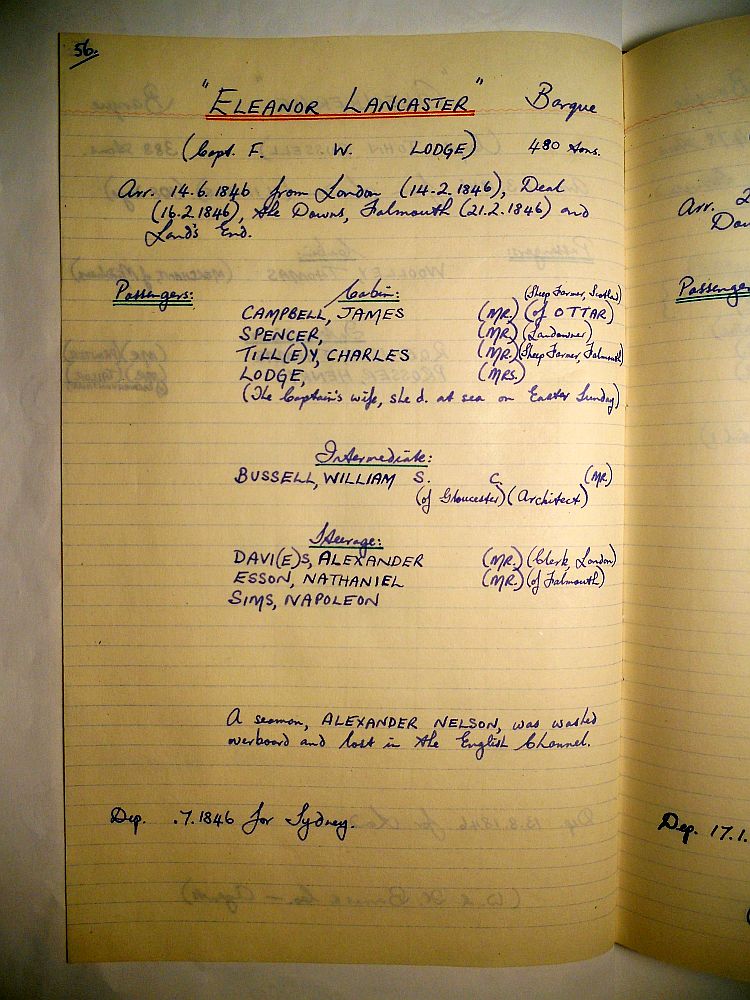 56.
"ELEANOR LANCASTER" Barque
(Capt. F. W. LODGE) 480 tons.
Arr. 14.6.1846 from London (14.2.1846), Deal
(16.2.1846), the Downs, Falmouth (21.2.1846) and
Land's End.
Passengers: Cabin: (Sheep Farmer, Scotland)
CAMPBELL, JAMES (MR.) (of OTTAR)
SPENCER, (MR.) (Landowner)
TILL(E)Y, CHARLES (MR.) (Sheep Farmer, Falmouth)
LODGE, (MRS.)
(The Captain's wife, she d. at sea on Easter Sunday)
Intermediate:
BUSSELL, WILLIAM S. C. (MR)
(of Gloucester) (Architect)
Steerage:
DAVI(E)S, ALEXANDER (MR.) (Clerk, London)
ESSON, NATHANIEL (MR.) (of Falmouth)
SIMS, NAPOLEON
A seaman, ALEXANDER NELSON, was washed
overboard and lost in the English Channel.
Dep. .7.1846 for Sydney.
Arr. 2
Passenger
Dep. 17.1.